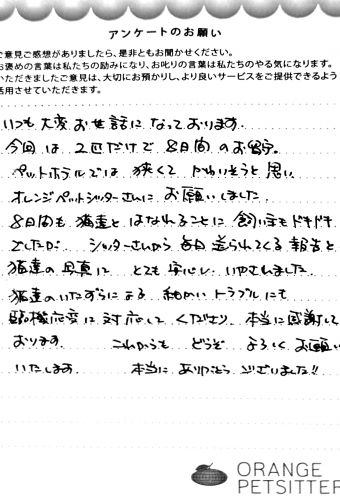 アンケートのお願い
ご意見ご感想がありましたら、是非ともお聞かせください。
お褒めの言葉は私たちの励みになり、お叱りの言葉は私たちのやる気になります。
いただきましたご意見は、大切にお預かりし、より良いサービスをご提供できるよう
活用させていただきます。
いつも大変お世話になっております。
今回は2匹だけで8日間のお留守。
ペットホテルでは狭くてかわいそうと思い
オレンジペットシッターさんにお願いしました。
8日間も猫達とはなれることに飼い主もドキドキ
でしたが、シッターさんから毎日送られてくる報告と
猫達の写真にとても安心し、いやされました。
猫達のいたずらによる細かいトラブルにも
臨機応変に対応してくださり、本当に感謝して
おります。これからもどうぞよろしくお願い
いたします。本当にありがとうございました!!
ORANGE
PETSITTER